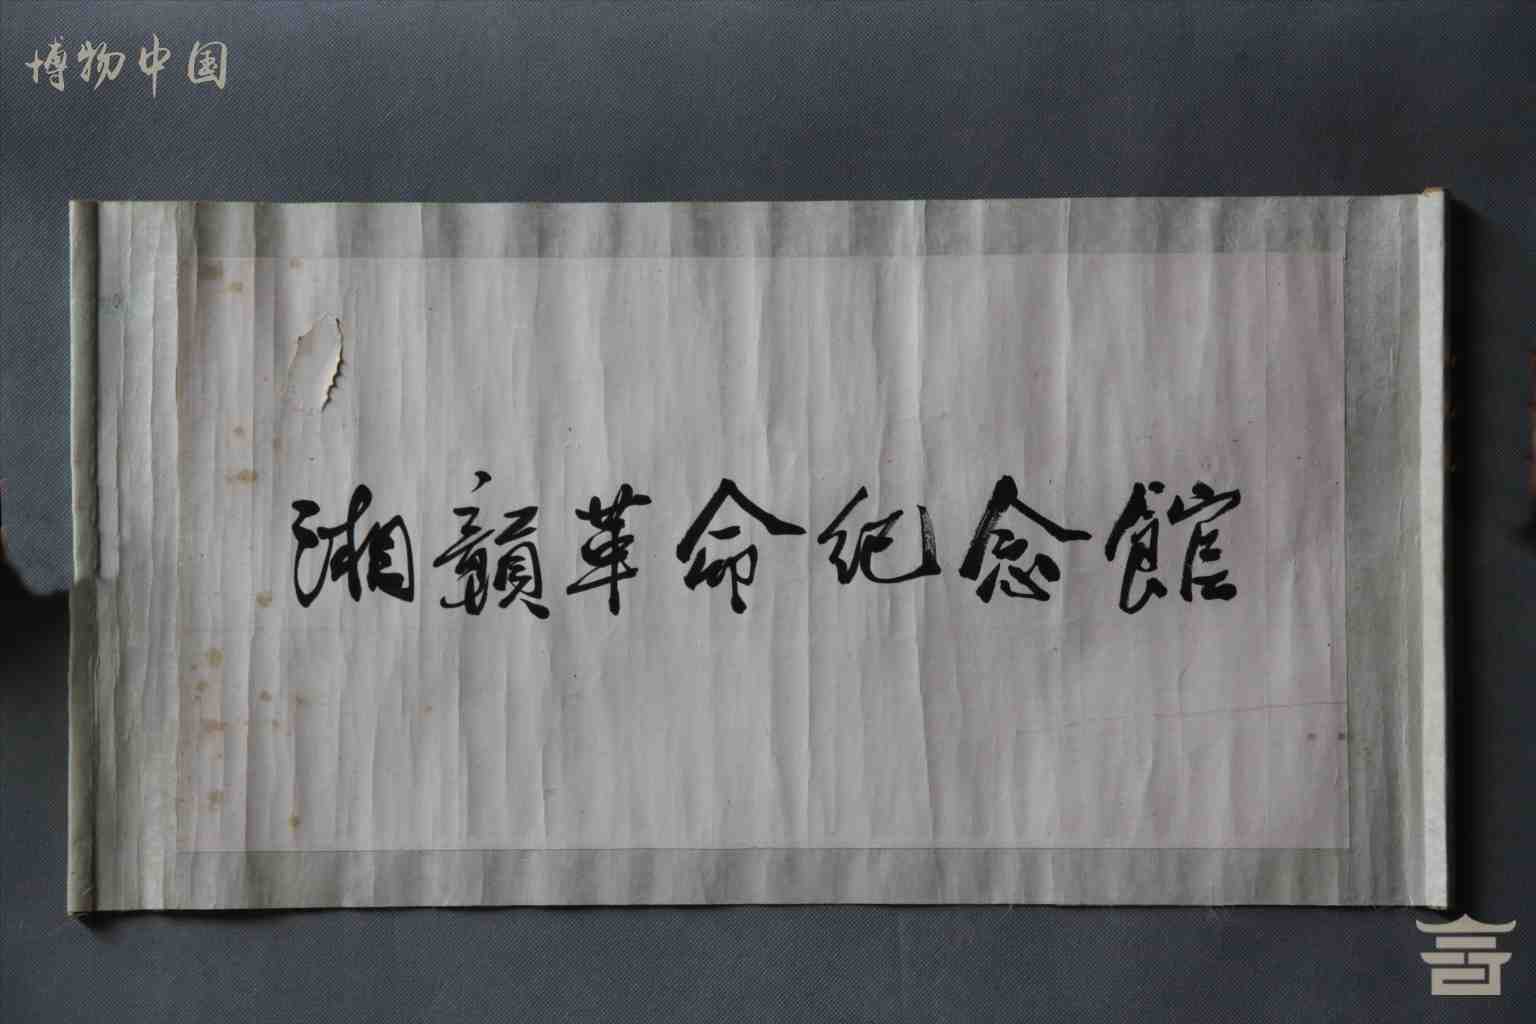 博物中国
湘赣革命纪念館